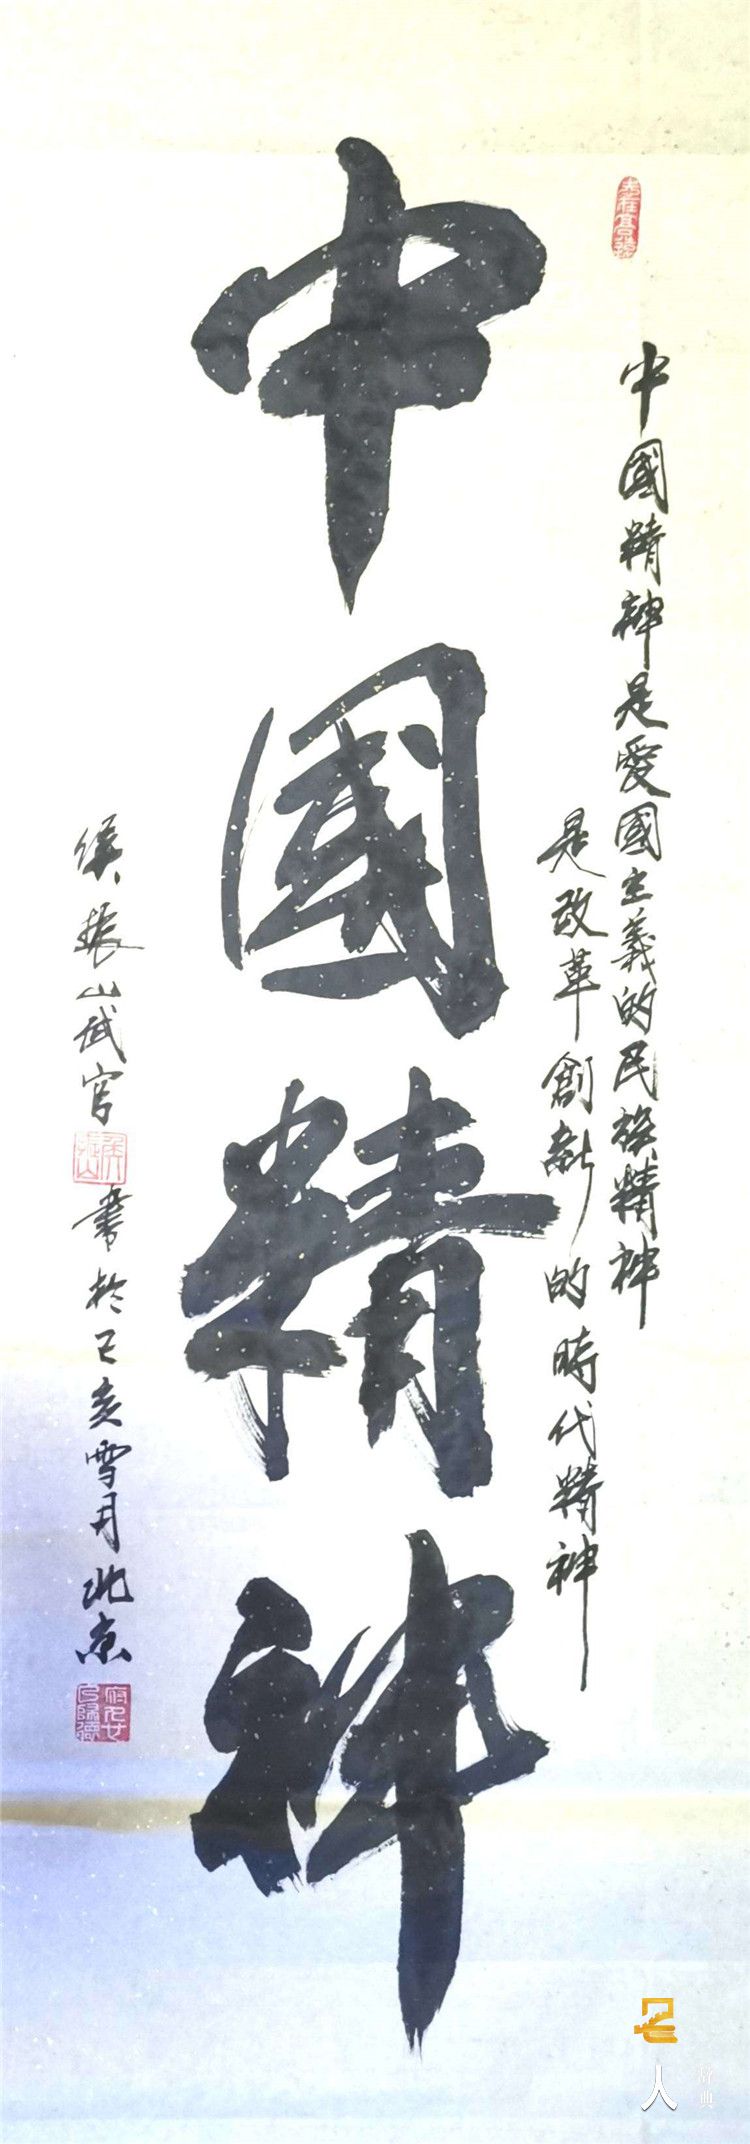 中國精神是愛國主義的民族精神
是改革創新的時代精神
中國精神
侯振山武官書於己亥雪月北京
人
辞典